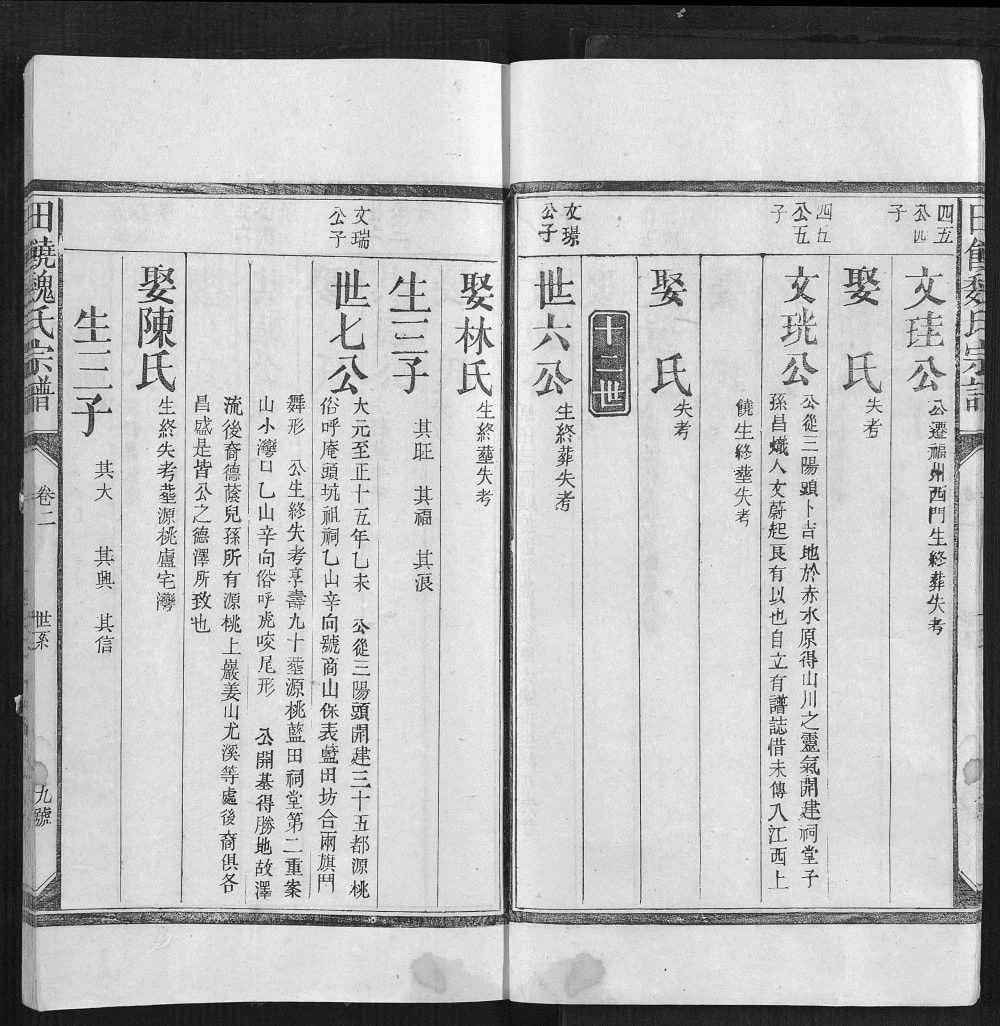 四五
公四
子
文珪公
公遷福州西門生終葬失考
娶 氏
失考
四五
公五
子
文珖公
公從三陽頭卜吉地於赤水原得山川之靈氣開建祠堂子
孫昌熾人文蔚起良有以也自立有譜誌借未傳入江西上
饒生終塟失考
娶 氏
失考
十二世
文璟
公子
世六公
生終葬失考
娶林氏
生終塟失考
生三子
其旺 其福 其浪
文瑞
公子
世七公
大元至正十五年乙未 公從三陽頭開建三十五都源桃
俗呼庵頭坑祖祠乙山辛向號商山保表藍田坊合兩旗鬥
舞形 公生終失考享壽九十塟源桃藍田祠堂第二重案
山小灣口乙山辛向俗呼虎咬尾形 公開基得勝地故澤
流後裔德蔭兒孫所有源桃上嚴姜山尤溪等處後裔俱各
昌盛是皆公之德澤所致也
娶陳氏
生終失考塟源桃盧宅灣
生三子
其大 其興 其信
田饒魏氏宗譜
卷二
世系
九號